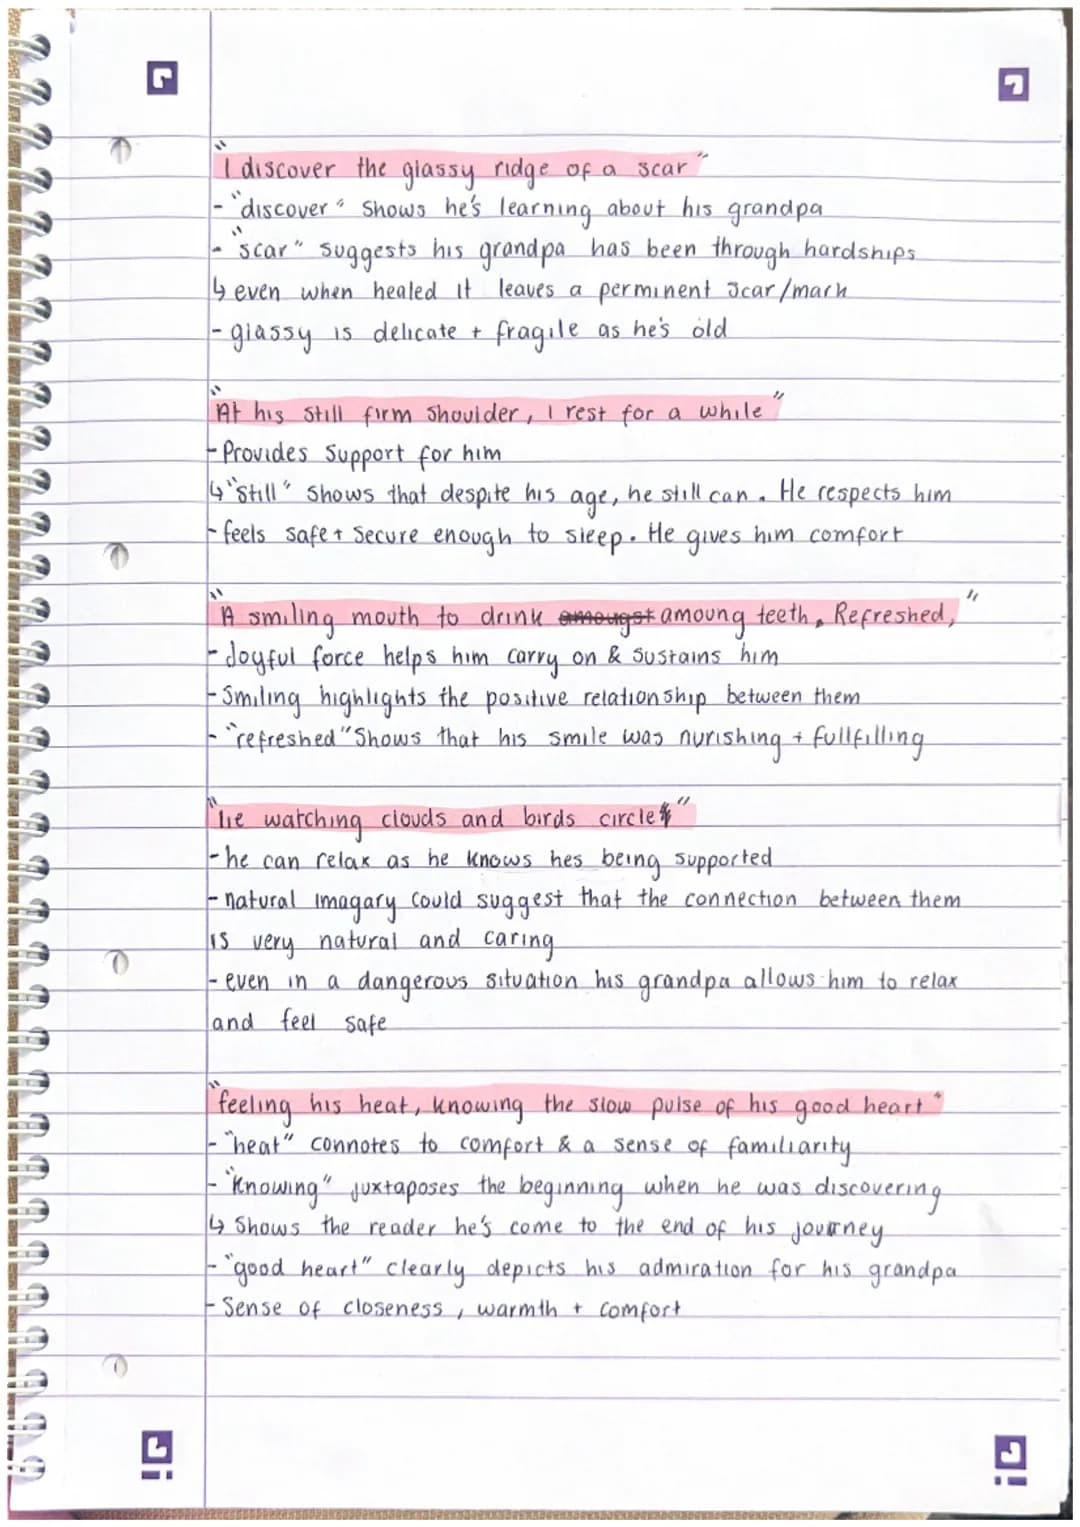 "I discover the glassy ridge of a scar"
- "discover" shows he's learning about his grandpa
- "scar" suggests his grandpa has been through hardships
↳ even when healed it leaves a perminent scar/mark
- glassy is delicate + fragile as he's old
"At his still firm shoulder, I rest for a while"
- Provides support for him
↳ "still" shows that despite his age, he still can. He respects him
- feels safe + secure enough to sleep. He gives him comfort
"A smiling mouth to drink amougst amoung teeth, Refreshed,"
- Joyful force helps him carry on & sustains him
- Smiling highlights the positive relationship between them
- "refreshed" shows that his smile was nurishing + fullfilling
"lie watching clouds and birds circle"
- he can relax as he knows hes being supported
- natural imagary could suggest that the connection between them
is very natural and caring
- even in a dangerous situation his grandpa allows him to relax
and feel safe
"feeling his heat, knowing the slow pulse of his good heart"
- "heat" connotes to comfort & a sense of familiarity
- "Knowing" juxtaposes the beginning when he was discovering
↳ shows the reader he's come to the end of his journey
- "good heart" clearly depicts his admiration for his grandpa
- Sense of closeness, warmth + comfort